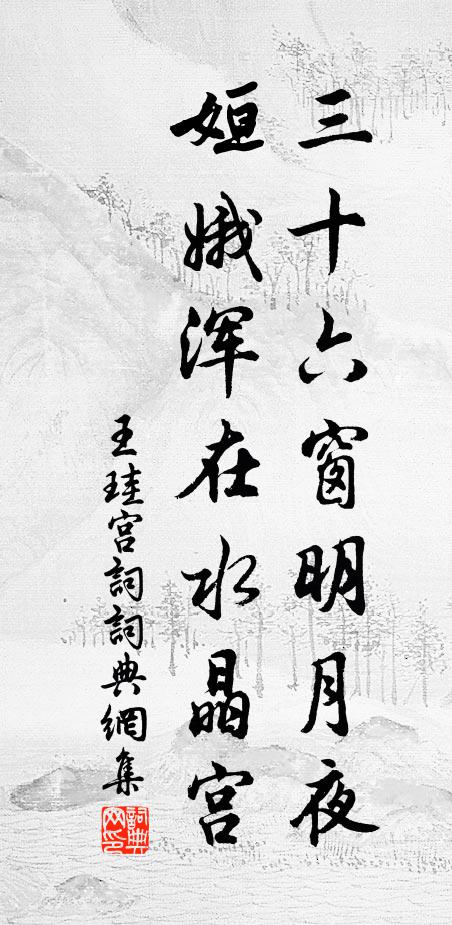 三十六窗明月夜
姮娥浑在水晶宫
王珪宫詞詞典網集
詞典
网印